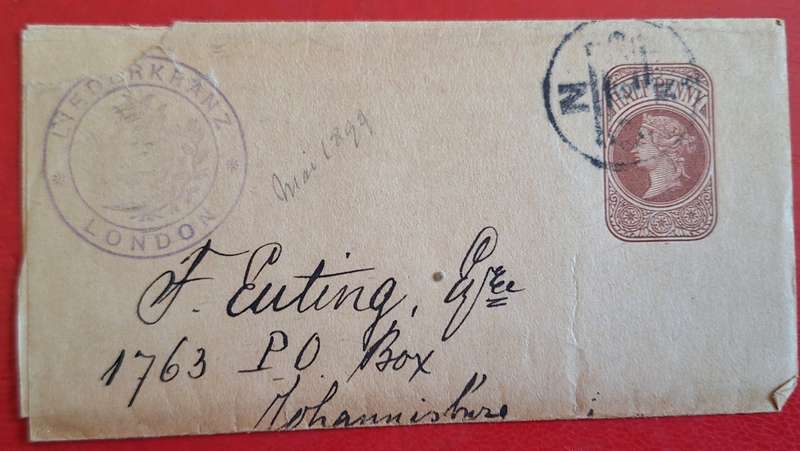 LIEDERKRANZ
LONDON
HALF PENNY
N
Mai 1899
F. Euting, Esqre
1763 P.O. Box
Johannisburg